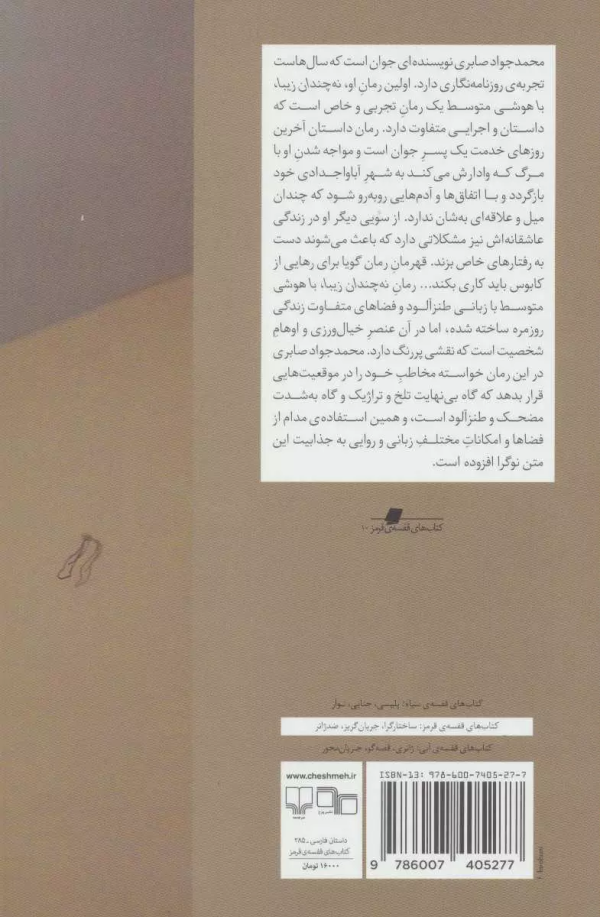 محمدجواد صابری نویسنده‌ای جوان است که سال‌هاست
تجربه‌ی روزنامه‌نگاری دارد. اولین رمانِ او، نه‌چندان زیبا،
با هوشی متوسط یک رمانِ تجربی و خاص است که
داستان و اجرایی متفاوت دارد. رمان داستان آخرین
روزهای خدمت یک پسرِ جوان است و مواجه شدنِ او با
مرگ که وادارش می‌کند به شهرِ آباواجدادی خود
بازگردد و با اتفاق‌ها و آدم‌هایی روبه‌رو شود که چندان
میل و علاقه‌ای به‌شان ندارد. از سویی دیگر او در زندگی
عاشقانه‌اش نیز مشکلاتی دارد که باعث می‌شوند دست
به رفتارهای خاص بزند. قهرمانِ رمان گویا برای رهایی از
کابوس باید کاری بکند... رمانِ نه‌چندان زیبا، با هوشی
متوسط با زبانی طنزآلود و فضاهای متفاوت زندگی
روزمره ساخته شده، اما در آن عنصرِ خیال‌ورزی و اوهامِ
شخصیت است که نقشی پررنگ دارد. محمدجواد صابری
در این رمان خواسته مخاطبِ خود را در موقعیت‌هایی
قرار بدهد که گاه بی‌نهایت تلخ و تراژیک و گاه به‌شدت
مضحک و طنزآلود است، و همین استفاده‌ی مدام از
فضاها و امکاناتِ مختلفِ زبانی و روایی به جذابیت این
متن نوگرا افزوده است.
کتاب‌های قفسه‌ی قرمز ۱۰
کتاب‌های قفسه‌ی سیاه: پلیسی، جنایی، نوآر
کتاب‌های قفسه‌ی قرمز: ساختارگرا، جریان‌گریز، ضدژانر
کتاب‌های قفسه‌ی آبی: ژانری، قصه‌گو، جریان‌محور
www.cheshmeh.ir
داستان فارسی ـ ۲۸۵
کتاب‌های قفسه‌ی قرمز
۱۶۰۰۰ تومان
ISBN-13: 978-600-7405-27-7
9 786007 405277